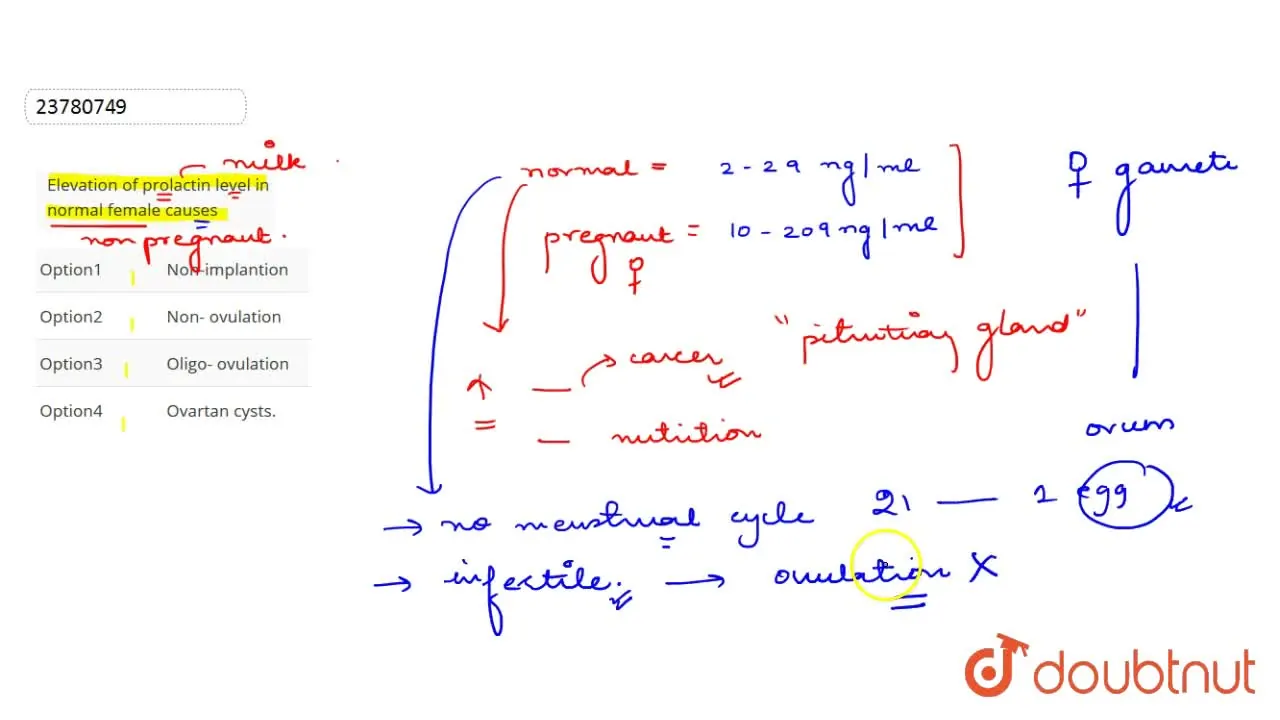 23780749
milk
Elevation of prolactin level in
normal female causes
non pregnant.
Option1 Non-implantion
Option2 Non- ovulation
Option3 Oligo- ovulation
Option4 Ovartan cysts.
normal = 2-29 ng/ml
pregnant = 10-209 ng/ml
♀
♀ gamete
"pitutiay gland"
↑ — carcer
= — nutition
ovum
→ no menstrual cycle 21 — 1 egg
→ infertile. → ovulation X
doubtnut